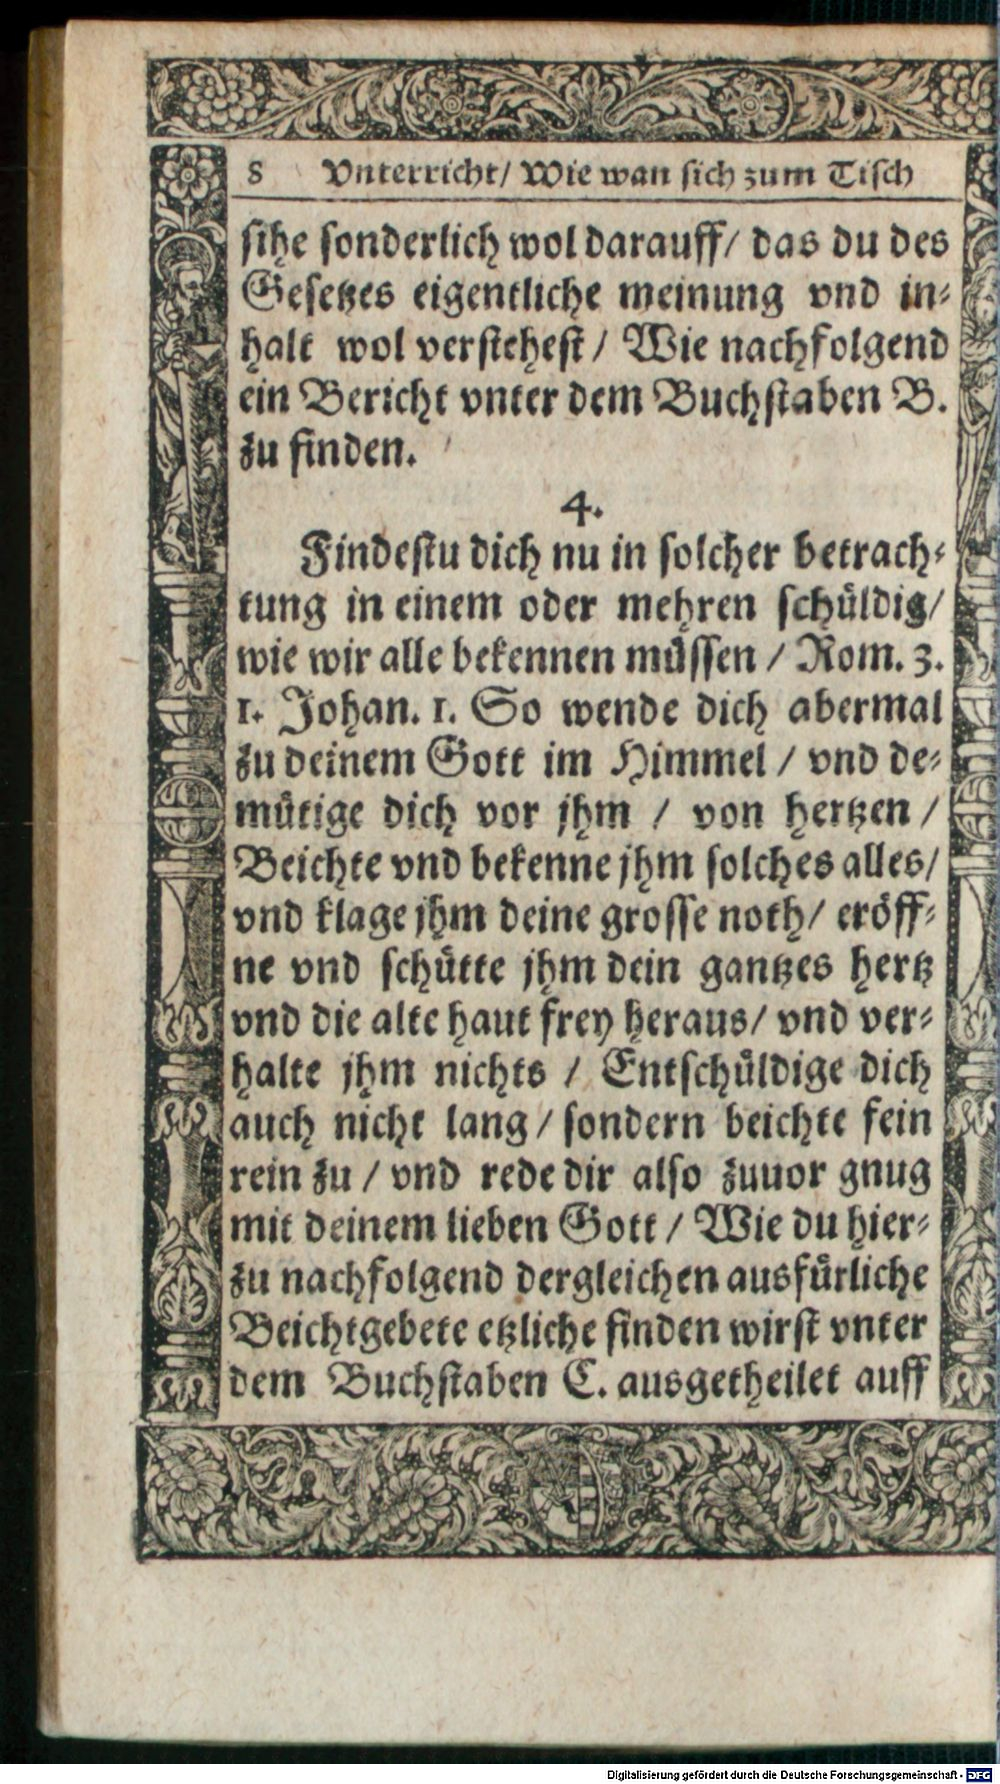 8 Vnterricht/ Wie wan sich zum Tisch
sihe sonderlich wol darauff/ das du des
Gesetzes eigentliche meinung vnd in-
halt wol verstehest / Wie nachfolgend
ein Bericht vnter dem Buchstaben B.
zu finden.
4.
Findestu dich nu in solcher betrach-
tung in einem oder mehren schüldig/
wie wir alle bekennen müssen / Rom. 3.
1. Johan. 1. So wende dich abermal
zu deinem Gott im Himmel / vnd de-
mütige dich vor jhm / von hertzen /
Beichte vnd bekenne jhm solches alles/
vnd klage jhm deine grosse noth/ eröff-
ne vnd schütte jhm dein gantzes hertz
vnd die alte haut frey heraus/ vnd ver-
halte jhm nichts / Entschüldige dich
auch nicht lang / sondern beichte fein
rein zu / vnd rede dir also zuuor gnug
mit deinem lieben Gott / Wie du hier-
zu nachfolgend dergleichen ausfürliche
Beichtgebete etzliche finden wirst vnter
dem Buchstaben C. ausgetheilet auff
Digitalisierung gefördert durch die Deutsche Forschungsgemeinschaft - DFG